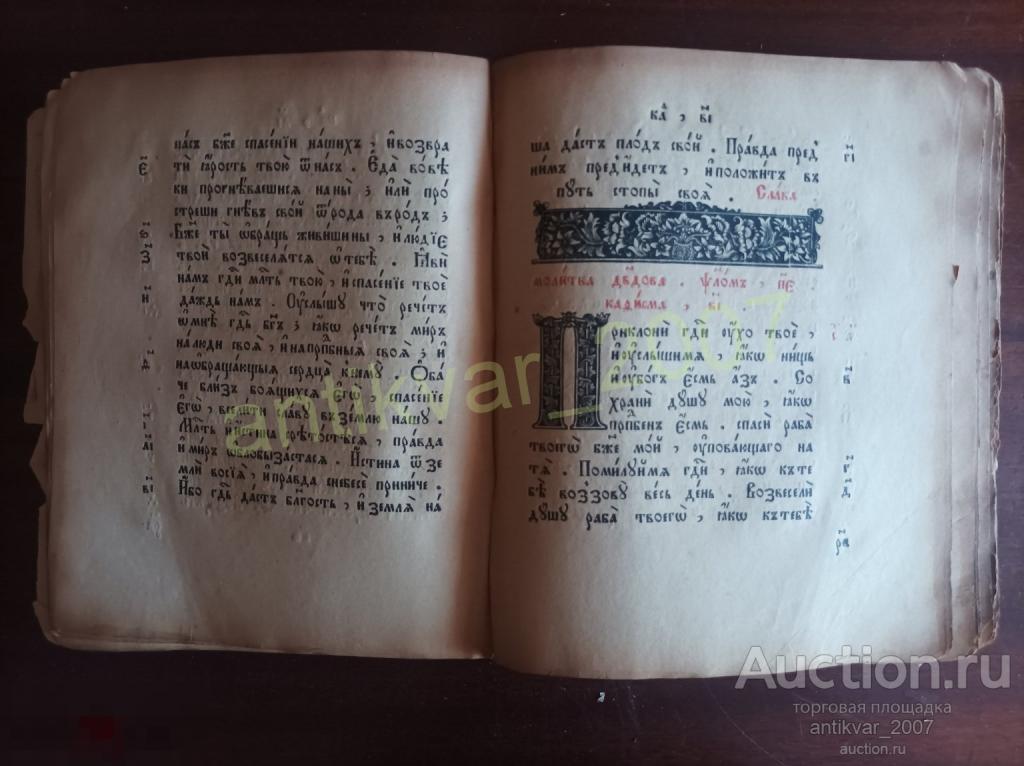 насъ бж҃е спасе́нїи на́шихъ , и҆возвра
тѝ ꙗ҆́рость твою̀ ѿна́съ . Є҆да̀ во́вѣ
ки прогнѣ́ваешися на́ны ; и҆лѝ про
стре́ши гнѣ́въ сво́й ѿро́да въро́дъ ;
Бж҃е ты̀ ѡ҆бра́щь живи́шины , и҆лю́дїе
твоѝ возвеселѧ́тся ѡ҆тебѣ̀ . Ꙗ҆вѝ
на́мъ гдⷭ҇и млⷭ҇ть твою̀ , и҆спасе́нїе твоѐ
да́ждь на́мъ . Оу҆слы́шу что̀ рече́тъ
ѡ҆мнѣ̀ гдⷭ҇ь бг҃ъ ; ꙗ҆́кѡ рече́тъ ми́ръ
на́люди своѧ̀ , и҆напрпⷣбныя своѧ̀ ; и҆
наѡ҆браща́ющыя сердца̀ кнему̀ . Ѻ҆ба́
че бли́зъ боя́щихся є҆гѡ̀ , спасе́нїе
є҆гѡ̀ , всели́ти сла́ву възе́млю на́шу .
Млⷭ҇ть и҆и҆́стина срѣ́тостѣся , пра́вда
и҆ми́ръ ѡ҆блобыза́стася . И҆́стина ѿзе
млѝ возсїѧ̀ , и҆пра́вда снебесѐ прини́че .
И҆́бо гдⷭ҇ь да́стъ бл҃гость , и҆земля̀ на́
є҃
ѕ҃
з҃
и҃
ѳ҃
і҃
а҃і
в҃і
ка҃ , в҃і
ша да́стъ пло́дъ сво́й . Пра́вда пред̾
ни́мъ пред̾и́детъ , и҆положи́тъ въ
пу́ть стопы̀ своѧ̀ . Сла́ва
г҃і
моли́тва дв҃дова . ѱало́мъ , п҃е
каѳі́сма , в҃і
Приклонѝ гдⷭ҇и оу҆́хо твоѐ ,
и҆оу҆слы́шимя , ꙗ҆́кѡ ни́щь
и҆оу҆бо́гъ є҆́смь а҆́зъ . Со
хранѝ ду́шу мою̀ , ꙗ҆́кѡ
прпⷣбенъ є҆́смь . спасѝ раба̀
твоегѡ̀ бж҃е мо́й , оу҆пова́ющаго на
тѧ̀ . Поми́луймя гдⷭ҇и , ꙗ҆́кѡ къте
бѣ̀ воззову̀ ве́сь де́нь . Возвеселѝ
ду́шу раба̀ твоегѡ̀ , ꙗ҆́кѡ къ тебѣ̀
в҃
г҃
д҃
antikvar_2007
Auction.ru
торговая площадка
antikvar_2007
auction.ru